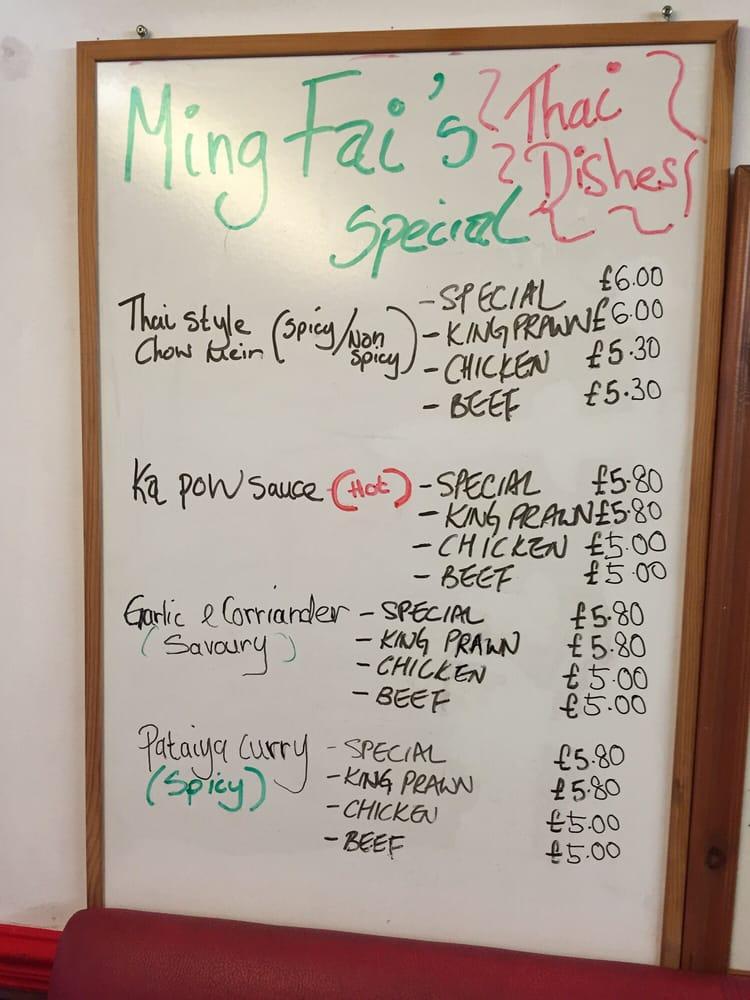 Ming Fai's Thai
Special Dishes
Thai Style (Spicy/Non
Chow Mein Spicy)
- SPECIAL £6.00
- KING PRAWN £6.00
- CHICKEN £5.30
- BEEF £5.30
Ka pow sauce (Hot) - SPECIAL £5.80
- KING PRAWN £5.80
- CHICKEN £5.00
- BEEF £5.00
Garlic & Corriander - SPECIAL £5.80
(Savoury) - KING PRAWN £5.80
- CHICKEN £5.00
- BEEF £5.00
Pataiya Curry - SPECIAL £5.80
(Spicy) - KING PRAWN £5.80
- CHICKEN £5.00
- BEEF £5.00